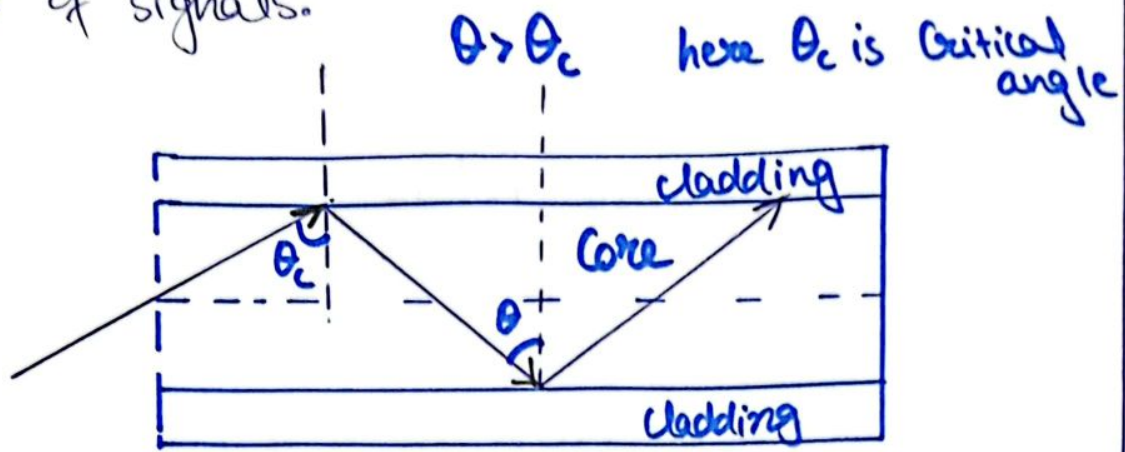 of signals.
θ > θc here θc is Critical
angle
cladding
θc
Core
θ
cladding